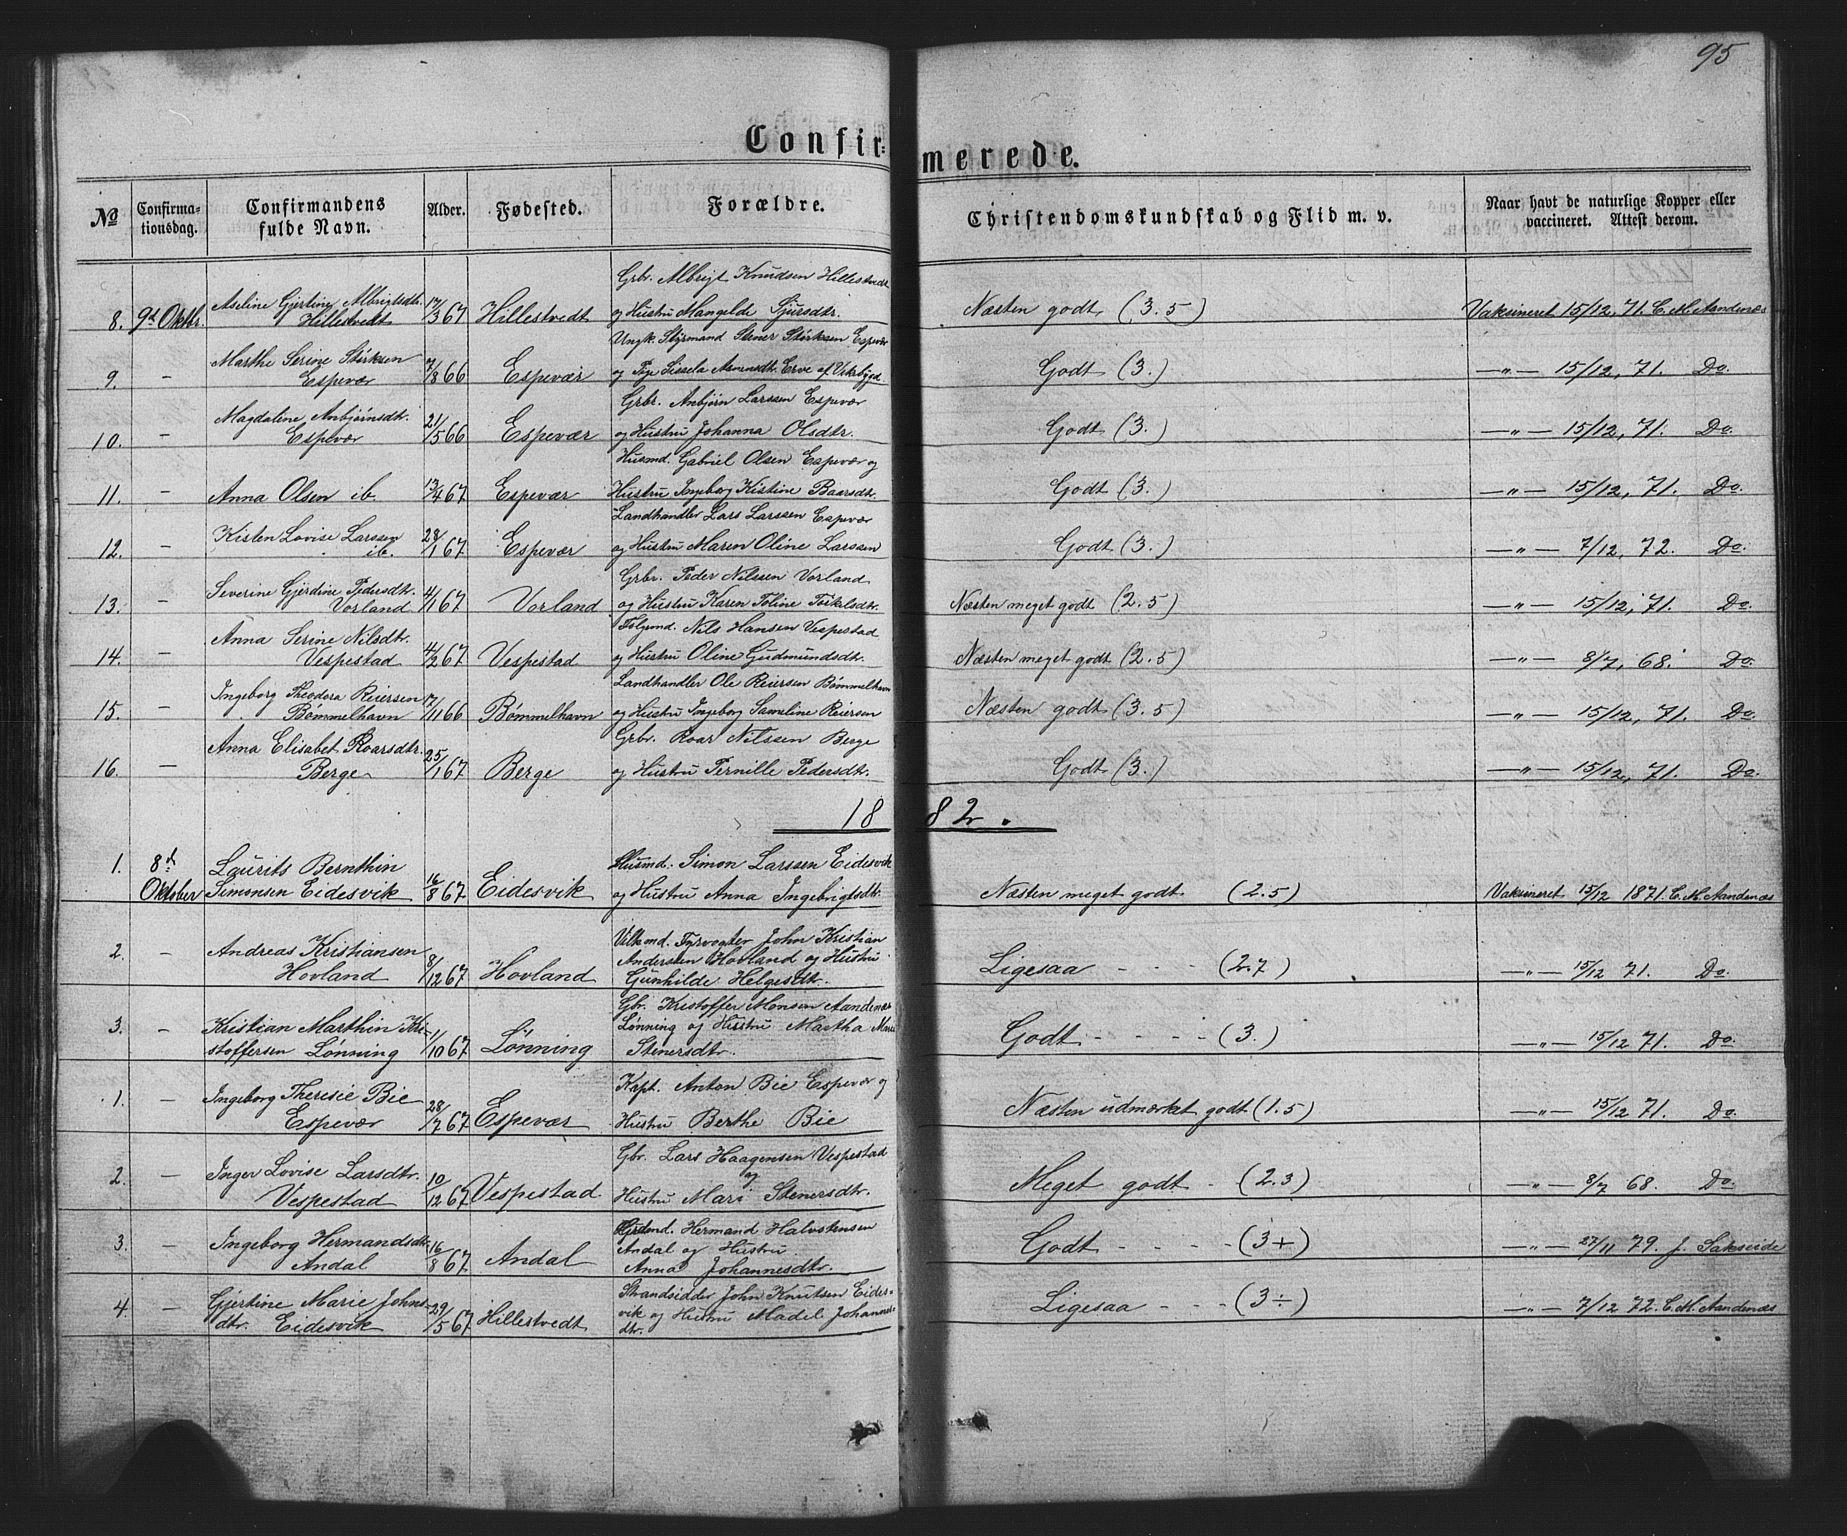 95
Confir=merede.
№ Confirma-tionsdag. Confirmandens fulde Navn. Alder. Fødested. Forældre. Christendomskundskab og Flid m. v. Naar havt de naturlige Kopper eller vaccineret. Attest derom.
Grbr. Albrigt Knudsen Hillestvedt
Aseline Gjertine Albrigtsdtr. 17/3 67
8. 9de Oktbr. Hillestvedt Hillestvedt og Hustru Mangelde Sjursdtr. Næsten godt (3.5) Vaksineret 15/12, 71. C. M. Aandenæs
Ungk. Styrmand Stener Størksen Espevær
Marthe Serine Størksen 7/8 66
9. — Espevær Espevær og Pige Sissela Asmundsdtr. Erve af Viksbygd. Godt (3.) —„— 15/12, 71. Do.
Grbr. Anbjørn Larssen Espevær
Magdaline Anbjørnsdtr. 21/5 66
10. — Espevær Espevær og Hustru Johanna Olsdtr. Godt (3.) —„— 15/12, 71. Do.
Husmd. Gabriel Olsen Espevær og
11. — Anna Olsen ib. 13/4 67 Espevær Hustru Ingeborg Kistine Baarsdtr. Godt (3.) —„— 15/12, 71. Do.
Landhandler Lars Larssen Espevær
Kisten Lovise Larssen 28/1 67
12. — ib. Espevær og Hustru Maren Oline Larssen Godt (3.) —„— 7/12, 72. Do.
Grbr. Peder Nilssen Vorland
Severine Gjerdine Pedersdtr. 4/1 67
13. — Vorland Vorland og Hustru Karen Toline Torkelsdtr. Næsten meget godt (2.5) —„— 15/12, 71. Do.
Følgemd. Nils Hansen Vespestad
Anna Serine Nilsdtr. 4/2 67
14. — Vespestad Vespestad og Hustru Oline Gudmundsdtr. Næsten meget godt (2.5) —„— 8/7, 68. Do.
Landhandler Ole Reiersen Bømmelhavn
Ingeborg Theodora Reiersen 17/11 66
15. — Bømmelhavn Bømmelhavn og Hustru Ingeborg Sameline Reiersen Næsten godt (3.5) —„— 15/12, 71. Do.
Grbr. Roar Nilssen Berge
Anna Elisabet Roarsdtr. 25/1 67
16. — Berge Berge og Hustru Pernille Pedersdtr. Godt (3.) —„— 15/12, 71. Do.
1882.
1. 8de Laurits Bernthin Husmd. Simon Larssen Eidesvik
Oktober Simonsen Eidesvik 16/8 67 Eidesvik og Hustru Anna Ingebrigtsdtr. Næsten meget godt (2.5) Vaksineret 15/12 1871. C. M. Aandenæs
2. — Andreas Kristiansen Fyrvogter John Kristian
Hovland 8/12 67 Hovland Andersen Hovland og Hustru Ligesaa - - - (2.7) —„— 15/12 71. Do.
Gunhilde Helgesdtr.
Gbr. Kristoffer Monsen Aandenæs
3. — Kristian Marthin Kri- Lønning og Hustru Martha Marie
stoffersen Lønning 1/10 67 Lønning Stenersdtr. Godt - - - - (3.) —„— 15/12 71. Do.
1. — Ingeborg Theresie Bie Kapt. Anton Bie Espevær og
Espevær 28/7 67 Espevær Hustru Berthe Bie Næsten udmærket godt (1.5) —„— 15/12 71. Do.
2. — Inger Lovise Larsdtr. Gbr. Lars Haagensen Vespestad
og
Vespestad 10/12 67 Vespestad Hustru Mari Stenersdtr. Meget godt - (2.3) —„— 8/7 68. Do.
3. — Ingeborg Hermandsdtr. Hermand Halvstensen
Andal 16/8 67 Andal Andal og Hustru Godt - - - - (3+) —„— 27/11 79. J. Sakseide
Anna Johannesdtr.
4. — Gjertine Marie Johns- Strandsidder John Knutsen Eides-
dtr. Eidesvik 29/5 67 Hillestvedt vik og Hustru Madel Johannes- Ligesaa - - - (3÷) —„— 7/12 72. C. M. Aandenæs
dtr.